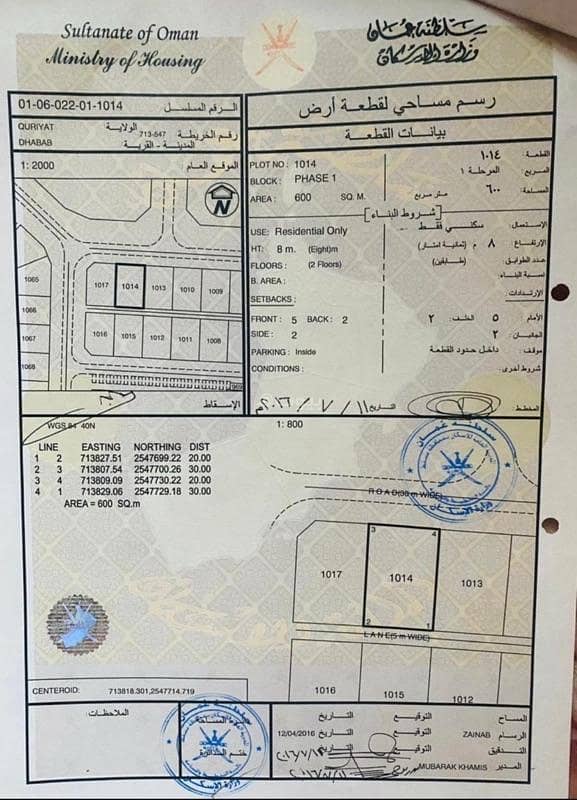 Sultanate of Oman
Ministry of Housing
سلطنة عمان
وزارة الإسكان
01-06-022-01-1014 الرقم المسلسل
QURIYAT الولاية
713-547 رقم الخريطة
DHABAB المدينة - القرية
1: 2000 الموقع العام
N
1065
1066
1067
1068
1017 1014 1013 1010 1009
1016 1015 1012 1011 1008
الإسقاط
WGS 84 40N
رسم مساحي لقطعة أرض
بيانات القطعة
PLOT NO : 1014 القطعة: ١٠١٤
BLOCK : PHASE 1 المربع المرحلة ١
AREA : 600 SQ. M. المساحة: ٦٠٠ متر مربع
شروط البناء
USE: Residential Only الإستعمال: سكني فقط
HT: 8 m. (Eight)m الإرتفاع ٨ م (ثمانية امتار)
FLOORS : (2 Floors) عدد الطوابق (طابقين)
B. AREA : نسبة البناء
SETBACKS : الإرتدادات
FRONT : 5 BACK : 2 الأمام ٥ الخلف ٢
SIDE : 2 الجانبان ٢
PARKING : Inside موقف: داخل حدود القطعة
CONDITIONS : شروط أخرى
المخطط: التاريخ ١١ / ٧ / ٢٠١٦م
1: 800
LINE EASTING NORTHING DIST
1 2 713827.51 2547699.22 20.00
2 3 713807.54 2547700.26 30.00
3 4 713809.09 2547730.22 20.00
4 1 713829.06 2547729.18 30.00
AREA = 600 SQ.m
سلطنة عمان
وزارة الإسكان
ROAD(30 m WIDE)
3 4
1017 1014 1013
2 1
LANE(5 m WIDE)
1016 1015 1012
CENTEROID: 713818.301,2547714.719
الملاحظات:
سلطنة عمان
وزارة الإسكان
المساح التوقيع التاريخ
الرسام ZAINAB التوقيع التاريخ 12/04/2016
التدقيق التوقيع التاريخ
المدير MUBARAK KHAMIS التوقيع التاريخ